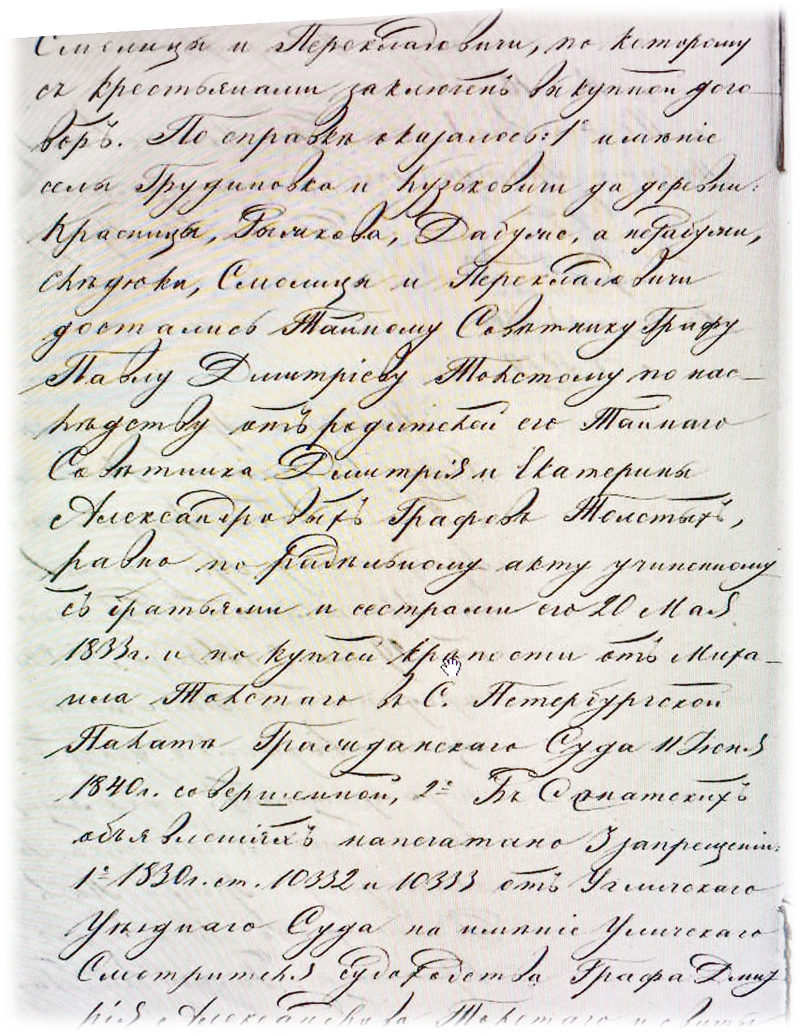 Смолицы и Перекладовичи, по которому
съ крестьянами заключенъ выкупной дого-
воръ. По справкѣ оказалось: 1е имѣніе
села Грудиновка и Кузьковичи да деревни:
Красницы, Рыжкова, Дабужа, а не Дабужи,
Смолицы и Перекладовичи
достались Тайному Совѣтнику Графу
Павлу Дмитріеву Толстому по нас-
лѣдству отъ родителей его Тайнаго
Совѣтника Дмитрія и Екатерины
Александровыхъ Графовъ Толстыхъ,
равно по раздѣльному акту учиненному
съ братьями и сестрами его 20 Мая
1833 г. и по купчей крѣпости отъ Миха-
ила Толстаго въ С. Петербургской
Палатѣ Гражданскаго Суда 11 Іюня
1840 г. совершенной, 2е Въ Сенатскихъ
объявленіяхъ напечатано 3 запрещенія:
1е 1830 г. ст. 10332 и 10333 отъ Угличскаго
Уѣзднаго Суда на имѣніе Угличскаго
Смотрителя судоходства Графа Дмит-
рія Александрова Толстаго и